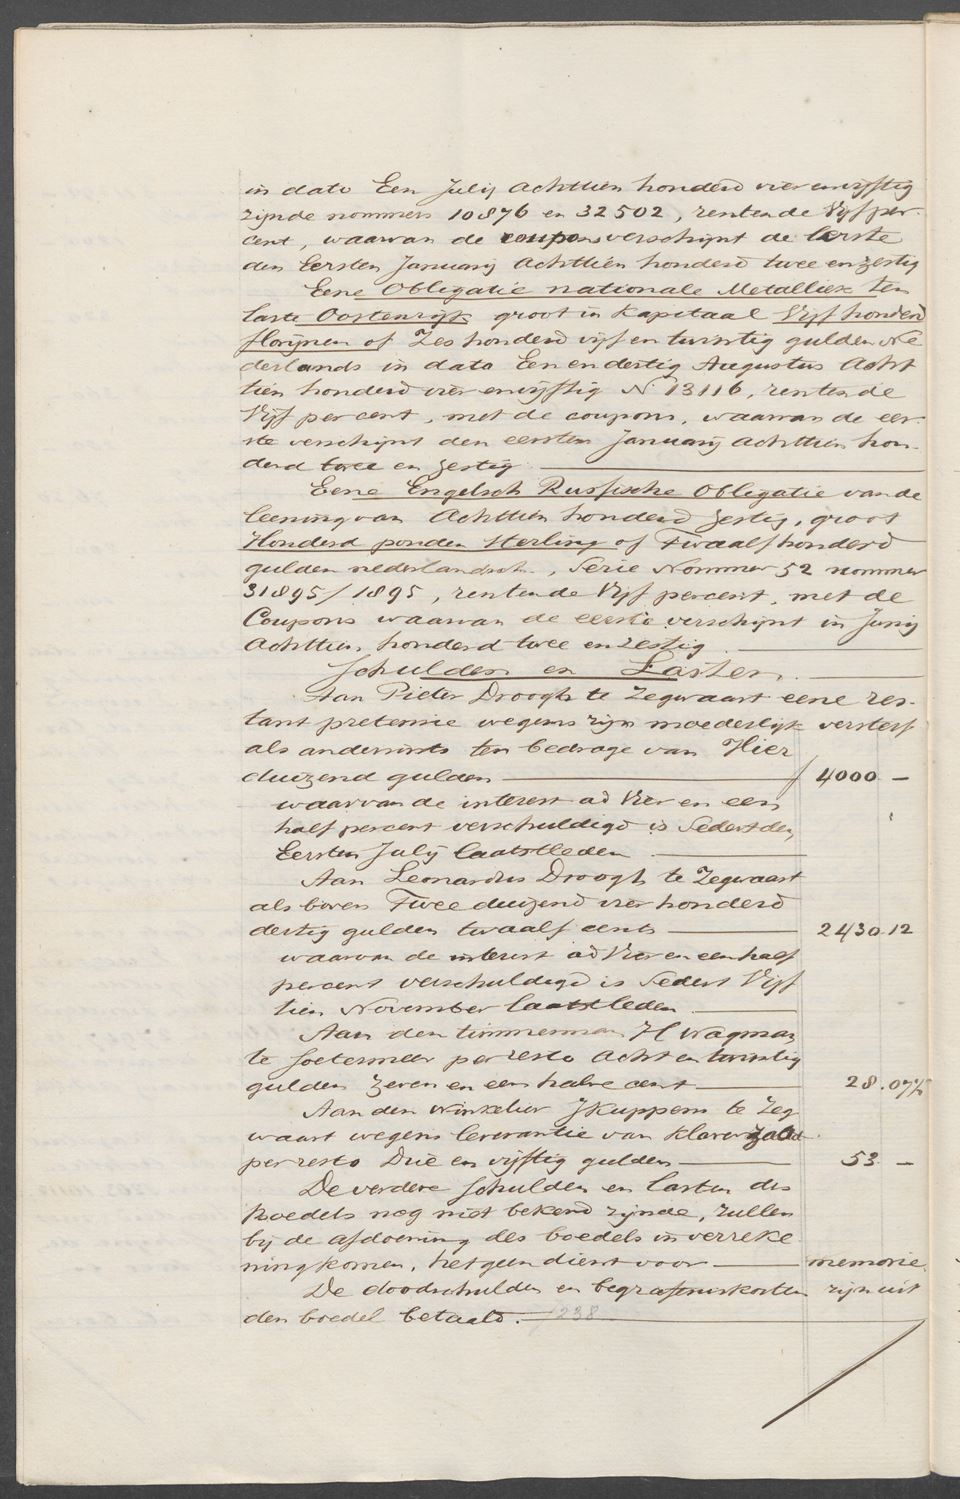 in dato Een Julij Achttien honderd vier envijftig
zijnde nommers 10876 en 32502, rentende Vijf per-
cent, waarvan de coupons verschijnt de Eerste
den Eersten Januarij Achttien honderd twee en zestig
Eene Obligatie nationale Metalliek ten
laste Oostenrijk groot in Kapitaal Vijf honderd
florijnen of Zes honderd vijf en twintig gulden Ne
derlands in dato Een en dertig Augustus Acht
tien honderd vier envijftig No 13116, rentende
Vijf per cent, met de coupons, waarvan de eer-
ste verschijnt den eersten Januarij Achttien hon-
derd twee en zestig
Eene Engelsch Russische Obligatie van de
leening van Achttien honderd zestig, groot
Honderd ponden Sterling of Twaalf honderd
gulden nederlandsch, Serie Nommer 52 nommer
31895/1895, rentende Vijf percent, met de
Coupons waarvan de eerste verschijnt in Junij
Achttien honderd twee en zestig
Schulden en Lasten
Aan Pieter Droogh te Zegwaart eene res-
tant pretensie wegens zijn moederlijk versterf
als anderzints ten bedrage van Vier
duizend gulden f 4000 -
waarvan de interest ad Vier en een
half percent verschuldigd is Sedert den
Eersten Julij laatstleden
Aan Leonardus Droogh te Zegwaart
als boven Twee duizend vier honderd
dertig gulden twaalf cents 2430.12
waarvan de interest ad Vier en een half
percent verschuldigd is Sedert Vijf
tien November laatstleden
Aan den timmerman H Wagman
te Soetermeer per resto Acht en twintig
gulden Zeven en een halve cent 28.07½
Aan den Winkelier J Kuppens te Zeg
waart wegens leverantie van Klaverzaad
per resto Drie en vijftig gulden 53 -
De verdere Schulden en lasten des
Boedels nog niet bekend zijnde, zullen
bij de afdoening des boedels in verreke
ning komen, hetgeen dient voor memorie
De doodschulden en begrafeniskosten zijn uit
den boedel betaald. 238